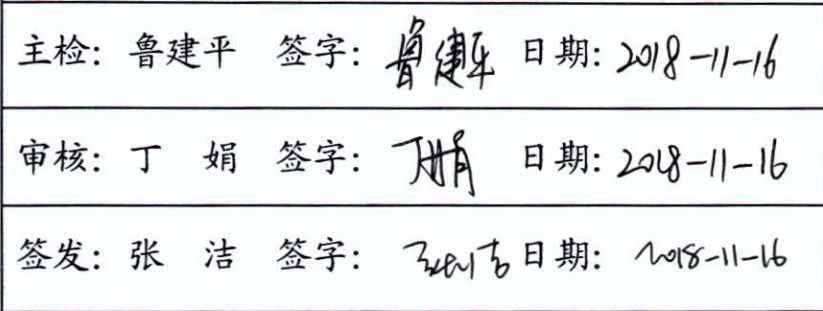 主检: 鲁建平 签字: 鲁建平 日期: 2018-11-16
审核: 丁 娟 签字: 丁娟 日期: 2018-11-16
签发: 张 洁 签字: 张洁 日期: 2018-11-16